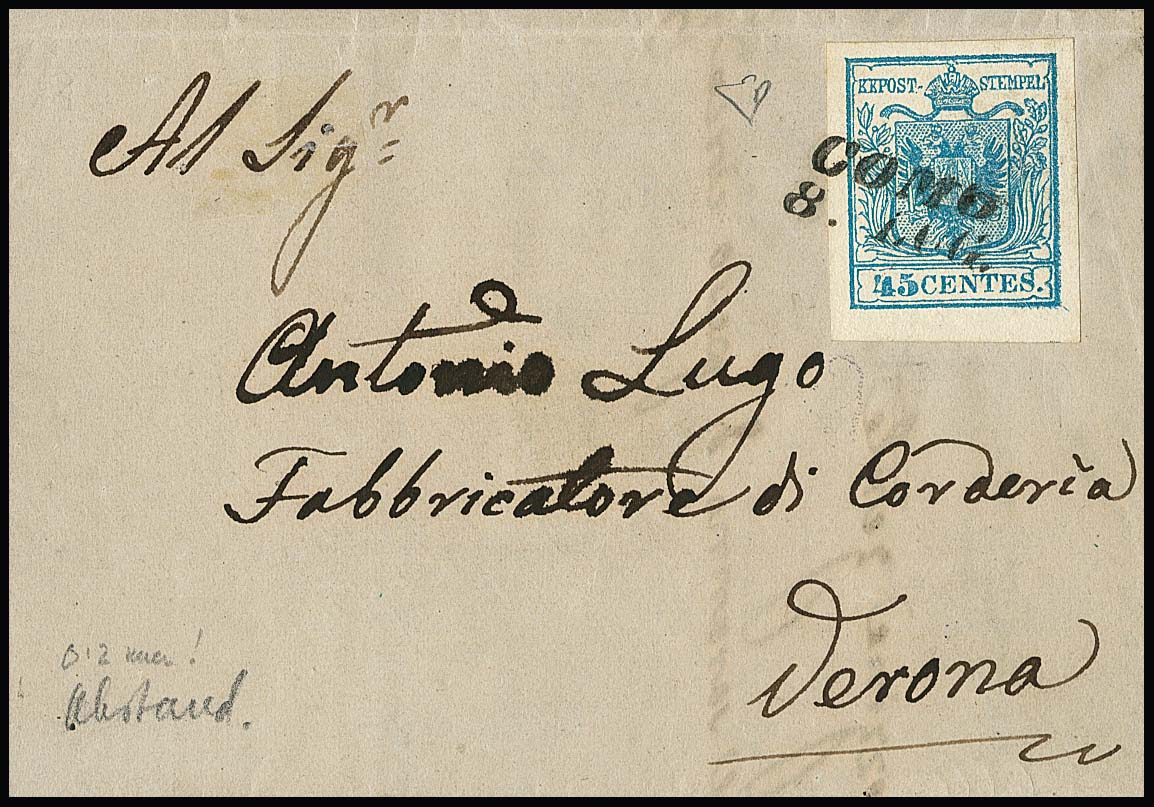 Al Sigr
KKPOST-STEMPEL
COMO
8. LUG.
45CENTES.
Antonio Lugo
Fabbricatore di Corderìa
Verona
0·2 mm!
Abstand.